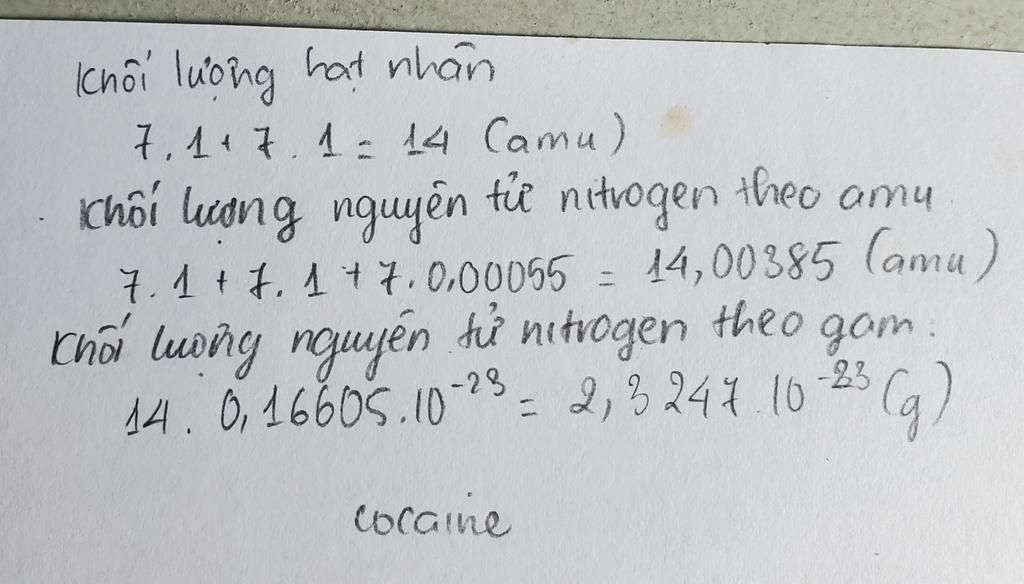 Khối lượng hạt nhân
7.1 + 7.1 = 14 (amu)
Khối lượng nguyên tử nitrogen theo amu
7.1 + 7.1 + 7.0,00055 = 14,00385 (amu)
Khối lượng nguyên tử nitrogen theo gam:
14. 0,16605.10⁻²³ = 2,3247.10⁻²³ (g)
cocaine